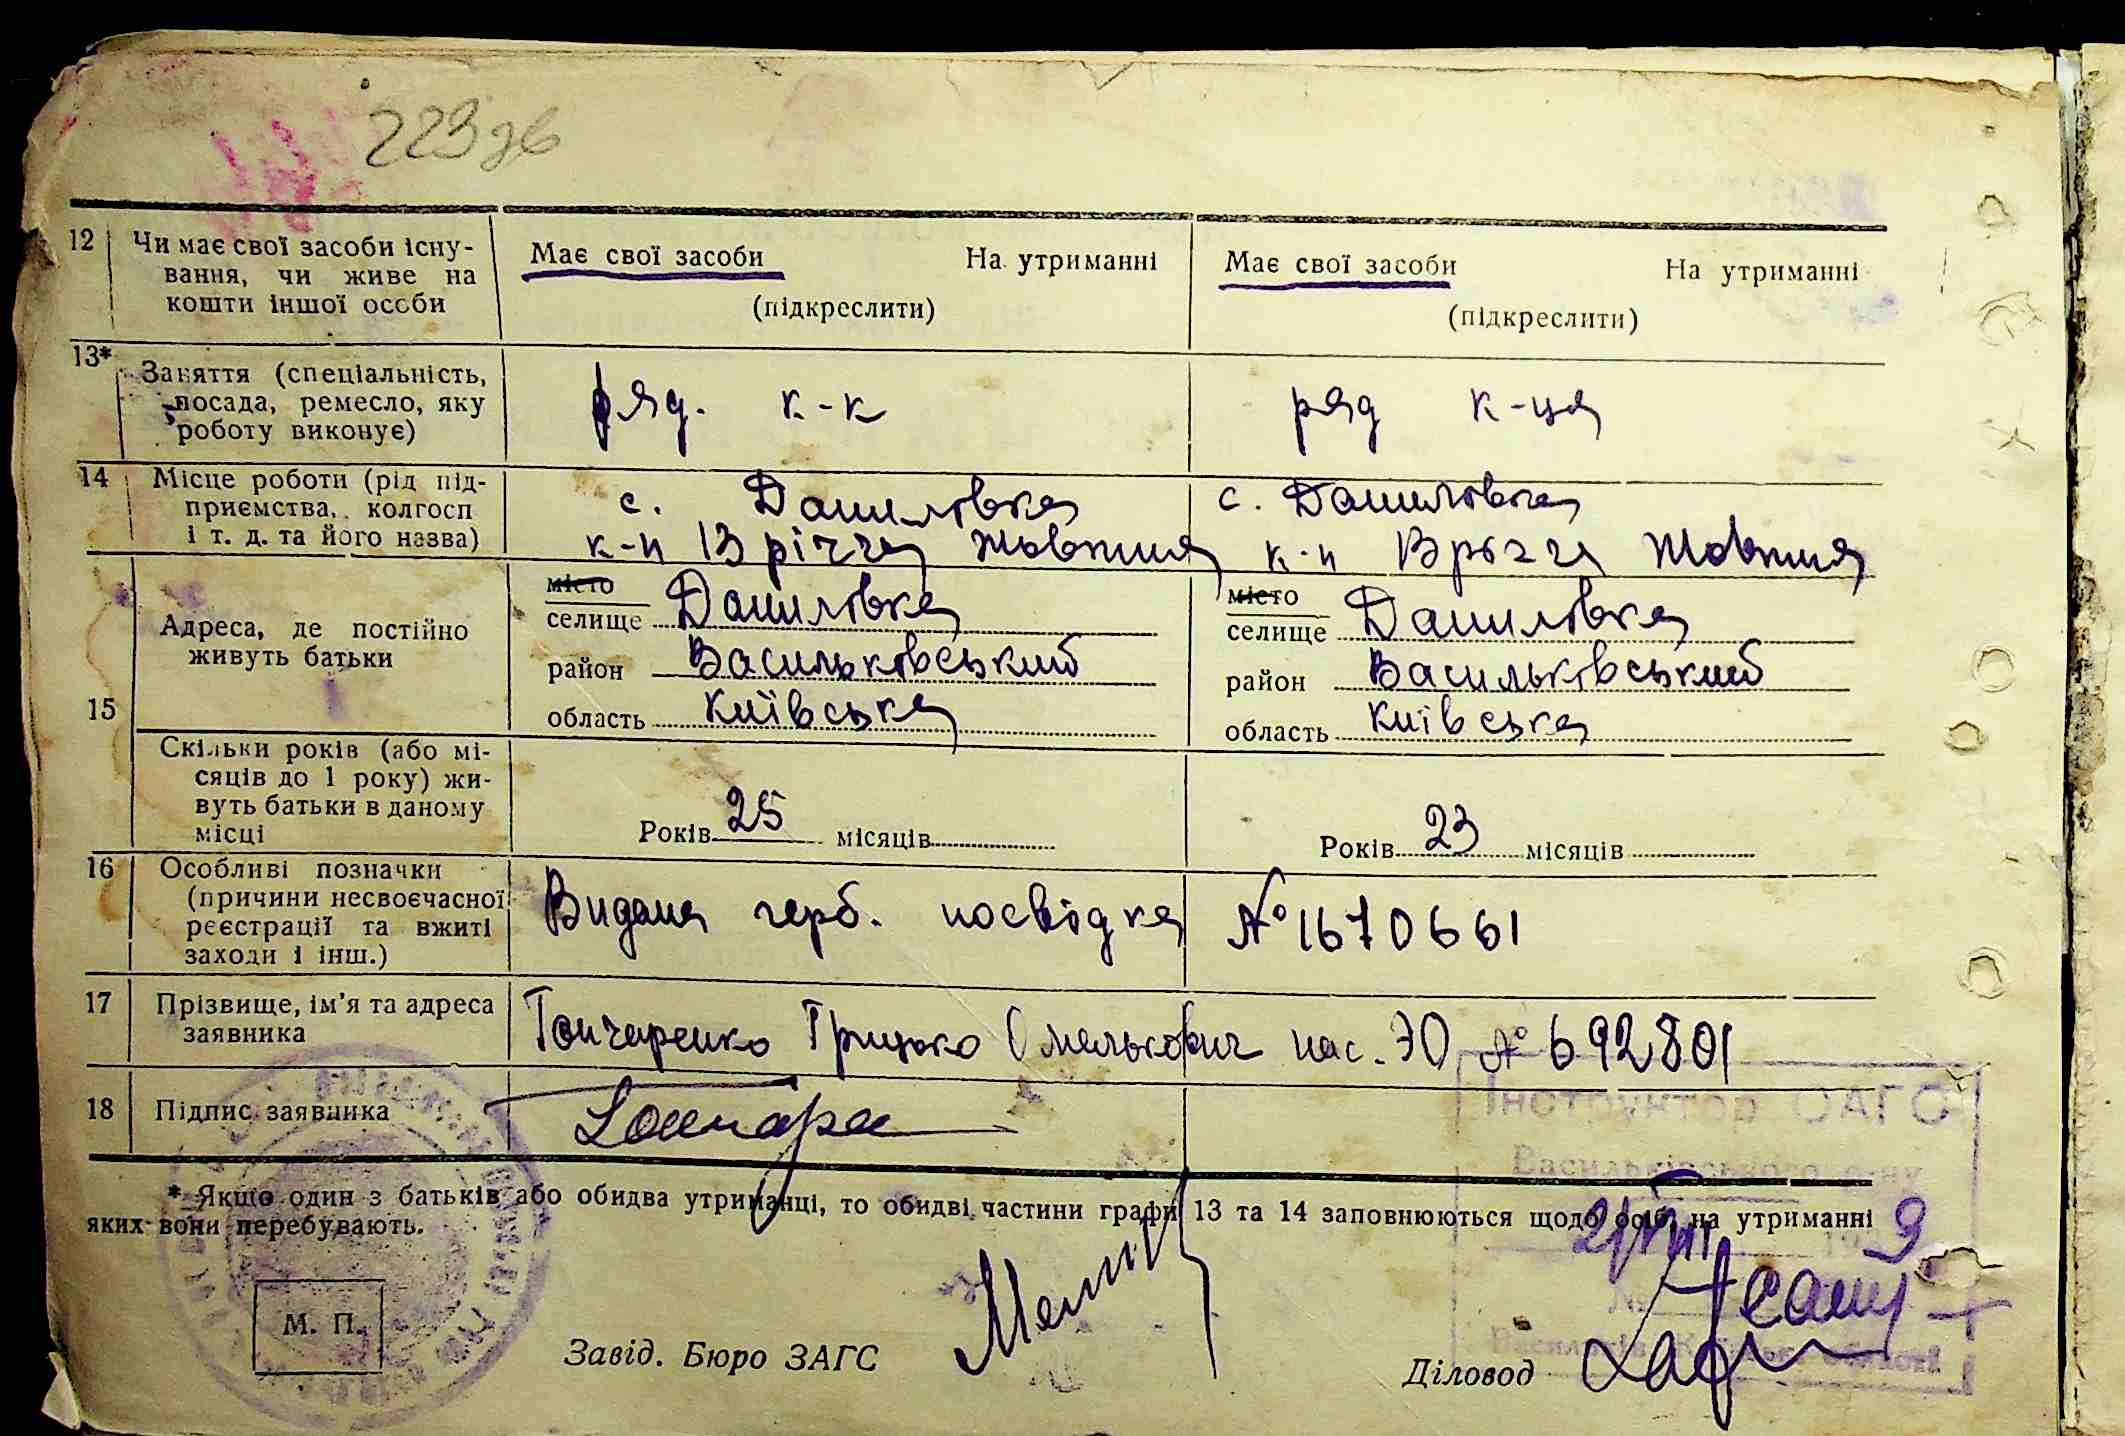 223 зв
12 Чи має свої засоби існу-
вання, чи живе на
кошти іншої особи
Має свої засоби На утриманні
(підкреслити)
Має свої засоби На утриманні
(підкреслити)
13* Заняття (спеціальність,
посада, ремесло, яку
роботу виконує)
ряд. к-к
ряд к-ця
14 Місце роботи (рід під-
приємства, колгосп
і т. д. та його назва)
с. Данилівка
к-п 13 річчя Жовтня
с. Данилівка
к-п 13 річчя Жовтня
15 Адреса, де постійно
живуть батьки
місто
селище Данилівка
район Васильківський
область Київська
місто
селище Данилівка
район Васильківський
область Київська
Скільки років (або мі-
сяців до 1 року) жи-
вуть батьки в даному
місці
Років 25 місяців
Років 23 місяців
16 Особливі позначки
(причини несвоєчасної
реєстрації та вжиті
заходи і інш.)
Видана герб. посвідка № 1670661
17 Прізвище, ім'я та адреса
заявника
Гончаренко Грицько Омелькович пас. ЭО № 692801
18 Підпис заявника
* Якщо один з батьків або обидва утриманці, то обидві частини графи 13 та 14 заповнюються щодо осіб, на утриманні
яких вони перебувають.
Інструктор ОАГС
Васильківського
21/VII 9
№
М. П.
Завід. Бюро ЗАГС
Діловод